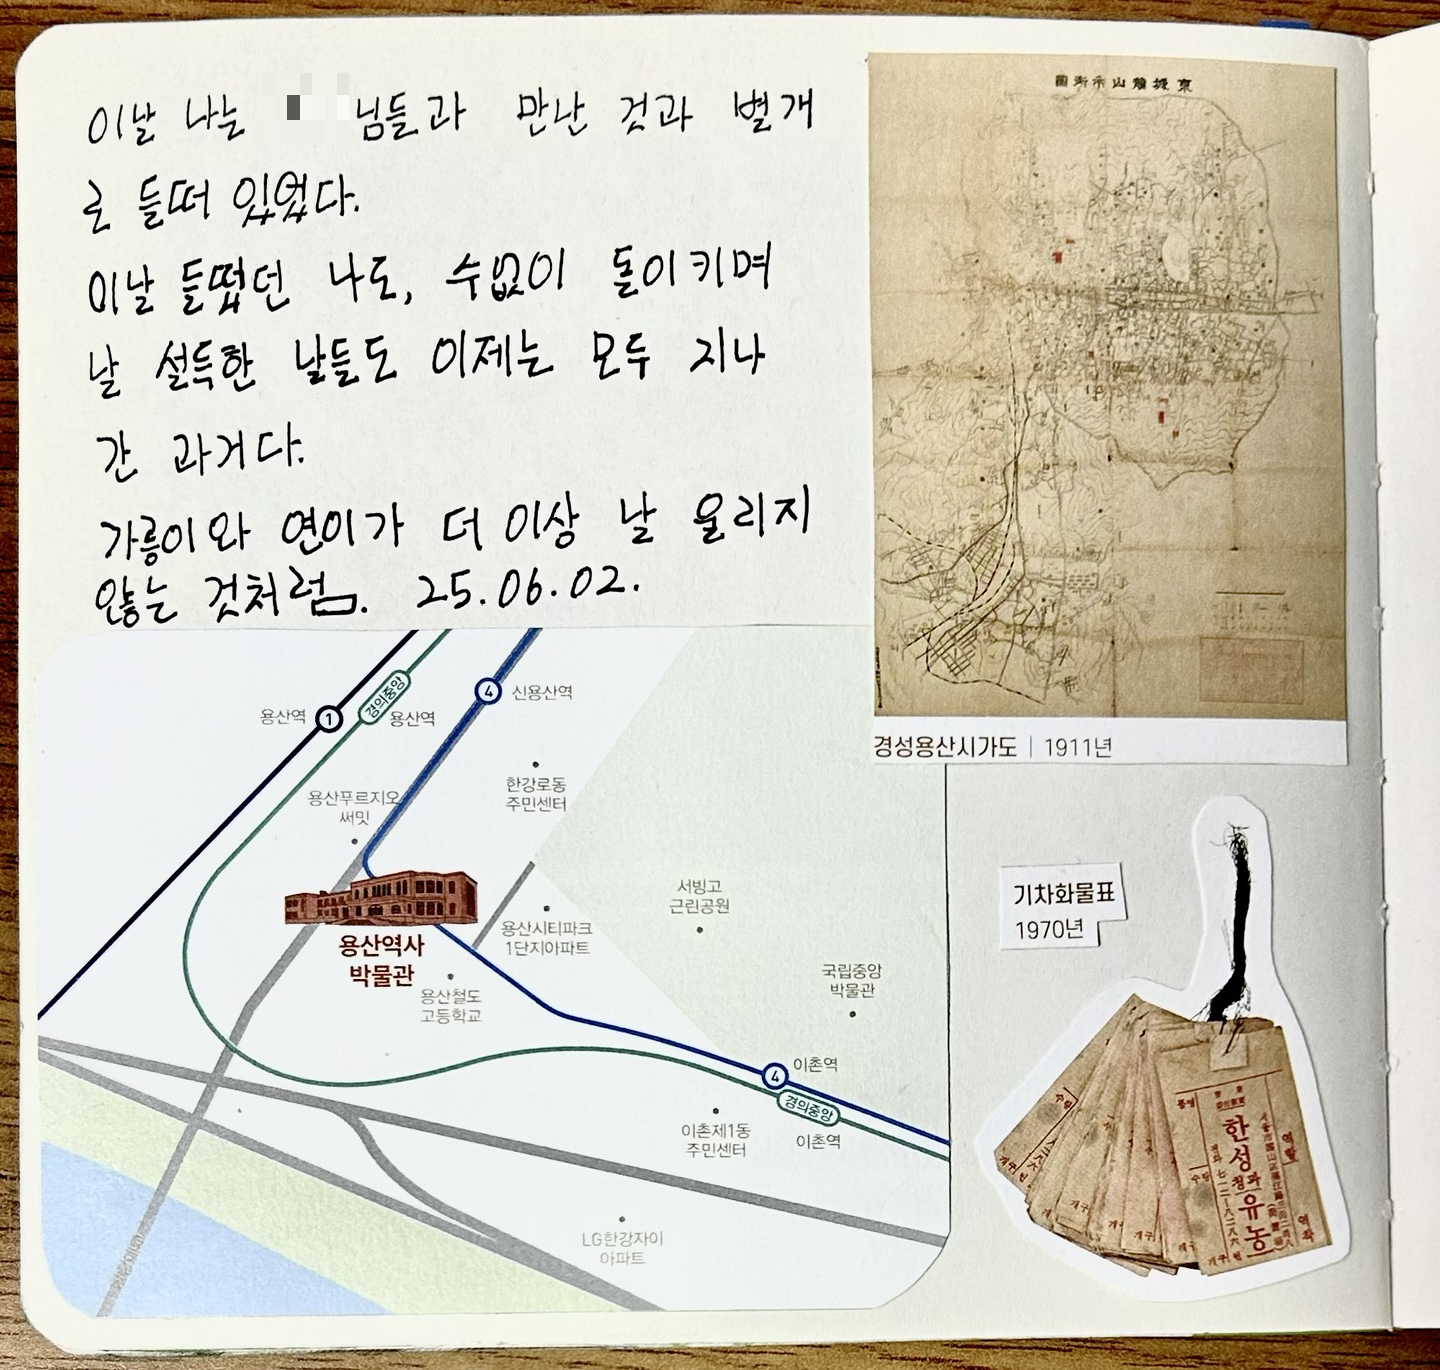 이날 나는 님들과 만난 것과 별개
로 들떠 있었다.
이날 들떴던 나도, 수없이 돌이키며
날 설득한 날들도 이제는 모두 지나
간 과거다.
가릉이와 연이가 더 이상 날 울리지
않는 것처럼. 25.06.02.
圖街市山龍城京
경성용산시가도 | 1911년
용산역 1
경의중앙 용산역
4 신용산역
한강로동
주민센터
용산푸르지오
써밋
용산역사
박물관
용산시티파크
1단지아파트
용산철도
고등학교
서빙고
근린공원
국립중앙
박물관
4 이촌역
경의중앙
이촌역
이촌제1동
주민센터
LG한강자이
아파트
기차화물표
1970년
한성
청과
유농